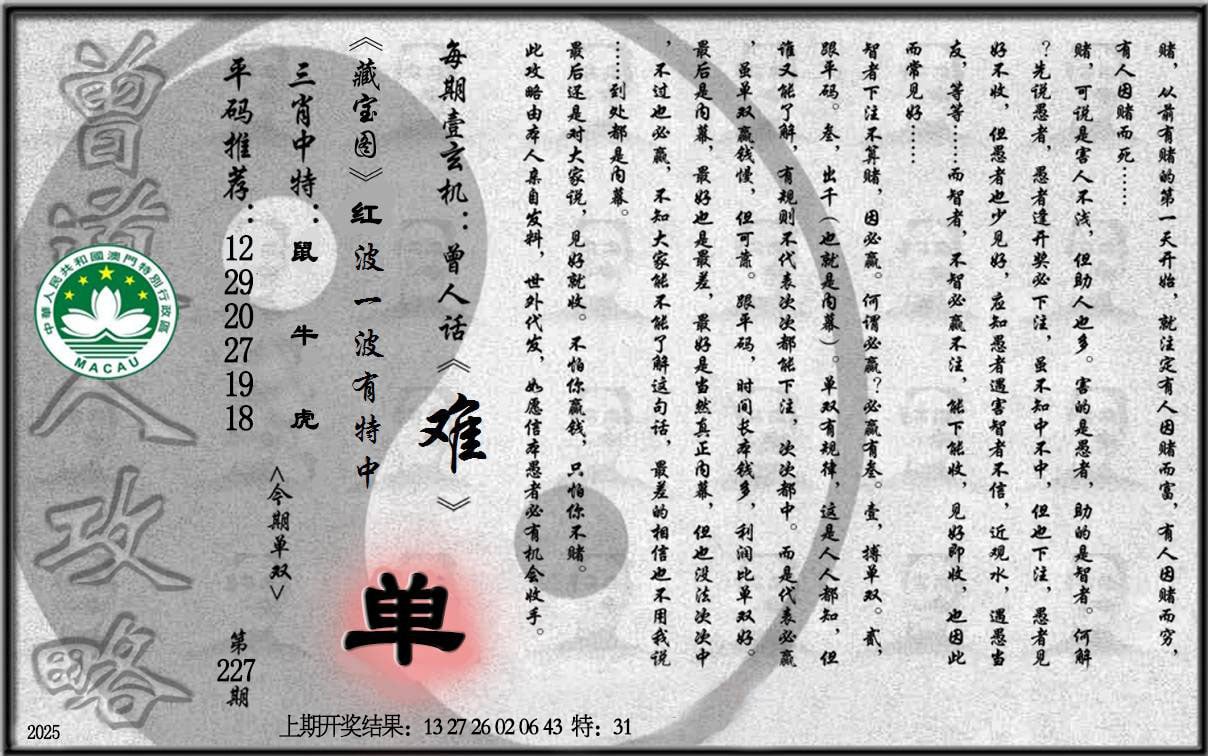 赌，从前有赌的第一天开始，就注定有人因赌而富，有人因赌而穷，
有人因赌而死……
赌，可说是害人不浅，但助人也多。害的是愚者，助的是智者。何解
？先说愚者，愚者逢开奖必下注，虽不知中不中，但也下注，愚者见
好不收，但愚者也少见好，应知愚者遇害智者不信，近观水，遇愚当
友，等等……而智者，不智必赢不注，能下能收，见好即收，也因此
而常见好……
智者下注不算赌，因必赢。何谓必赢？必赢有叁。壹，搏单双。贰，
跟平码。叁，出千（也就是内幕）。单双有规律，这是人人都知，但
谁又能了解，有规则不代表次次都能下注，次次都中。而是代表必赢
，虽单双赢钱慢，但可靠。跟平码，时间长本钱多，利润比单双好。
最后是内幕，最好也是最差，最好是当然真正内幕，但也没法次次中
，不过也必赢，不知大家能不能了解这句话，最差的相信也不用我说
……到处都是内幕。
最后还是对大家说，见好就收。不怕你赢钱，只怕你不赌。
此攻略由本人亲自发料，世外代发，如愿信本愚者必有机会收手。
每期壹玄机：曾人话《难》
《藏宝图》红波一波有特中
三肖中特：鼠 牛 虎
平码推荐：12 29 20 27 19 18
<今期单双>
单
第227期
曾道人攻略
中華人民共和國澳門特別行政區
MACAU
2025
上期开奖结果：13 27 26 02 06 43 特：31